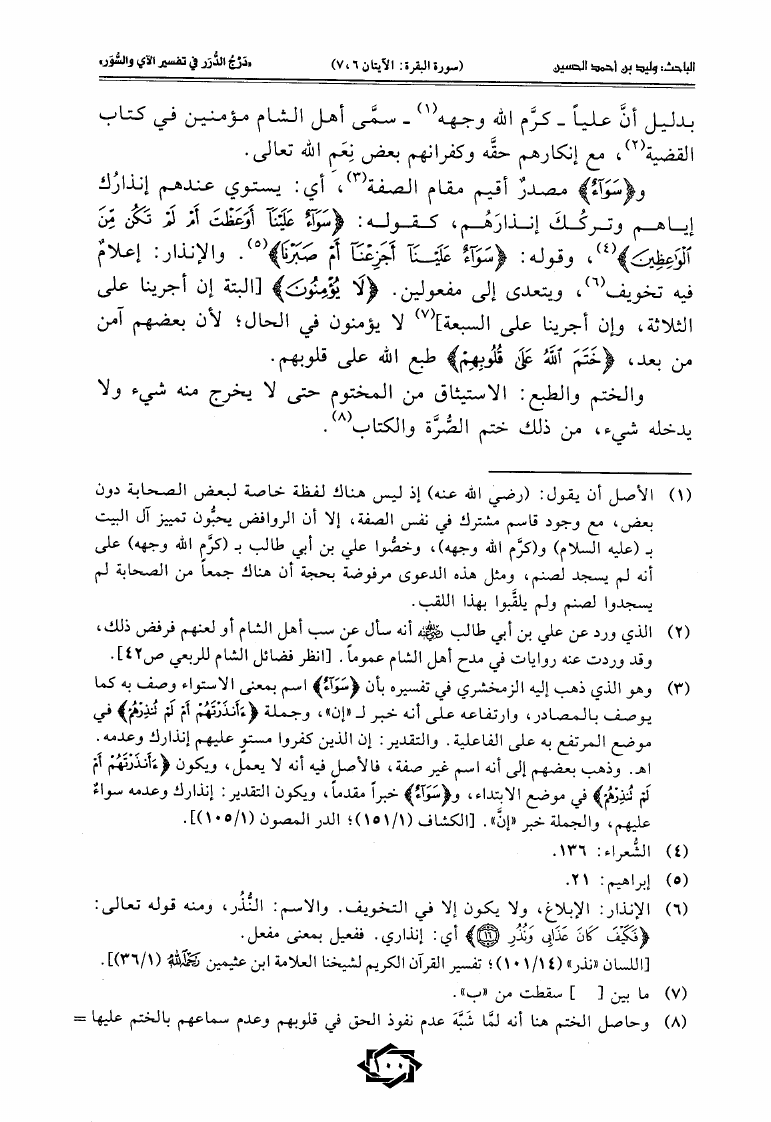 الباحث: وليد بن أحمد الحسين (سورة البقرة: الآيتان ٦، ٧) «دَرْجُ الدُّرَر في تفسير الآي والسُّوَر»
بدليل أنَّ علياً ـ كرَّم الله وجهه(١) ـ سمَّى أهل الشام مؤمنين في كتاب
القضية(٢)، مع إنكارهم حقَّه وكفرانهم بعض نِعَم الله تعالى.
و﴿سَوَآءٌ﴾ مصدرٌ أقيم مقام الصفة(٣)، أي: يستوي عندهم إنذارُك
إياهم وتركُكَ إنذارَهُم، كقوله: ﴿سَوَآءٌ عَلَيْنَآ أَوَعَظْتَ أَمْ لَمْ تَكُن مِّنَ
ٱلْوَٰعِظِينَ﴾(٤)، وقوله: ﴿سَوَآءٌ عَلَيْنَآ أَجَزِعْنَآ أَمْ صَبَرْنَا﴾(٥). والإنذار: إعلامٌ
فيه تخويف(٦)، ويتعدى إلى مفعولين. ﴿لَا يُؤْمِنُونَ﴾ [البتة إن أجرينا على
الثلاثة، وإن أجرينا على السبعة](٧) لا يؤمنون في الحال؛ لأن بعضهم آمن
من بعد، ﴿خَتَمَ ٱللَّهُ عَلَىٰ قُلُوبِهِمْ﴾ طبع الله على قلوبهم.
والختم والطبع: الاستيثاق من المختوم حتى لا يخرج منه شيء ولا
يدخله شيء، من ذلك ختم الصُّرَّة والكتاب(٨).
(١) الأصل أن يقول: (رضي الله عنه) إذ ليس هناك لفظة خاصة لبعض الصحابة دون
بعض، مع وجود قاسم مشترك في نفس الصفة، إلا أن الروافض يحبُّون تمييز آل البيت
بـ (عليه السلام) و(كرَّم الله وجهه)، وخصُّوا علي بن أبي طالب بـ (كرَّم الله وجهه) على
أنه لم يسجد لصنم، ومثل هذه الدعوى مرفوضة بحجة أن هناك جمعاً من الصحابة لم
يسجدوا لصنم ولم يلقَّبوا بهذا اللقب.
(٢) الذي ورد عن علي بن أبي طالب رضي الله عنه أنه سأل عن سب أهل الشام أو لعنهم فرفض ذلك،
وقد وردت عنه روايات في مدح أهل الشام عموماً. [انظر فضائل الشام للربعي ص٤٢].
(٣) وهو الذي ذهب إليه الزمخشري في تفسيره بأن ﴿سَوَآءٌ﴾ اسم بمعنى الاستواء وصف به كما
يوصف بالمصادر، وارتفاعه على أنه خبر لـ «إن»، وجملة ﴿ءَأَنذَرْتَهُمْ أَمْ لَمْ تُنذِرْهُمْ﴾ في
موضع المرتفع به على الفاعلية. والتقدير: إن الذين كفروا مستوٍ عليهم إنذارك وعدمه.
اهـ. وذهب بعضهم إلى أنه اسم غير صفة، فالأصل فيه أنه لا يعمل، ويكون ﴿ءَأَنذَرْتَهُمْ أَمْ
لَمْ تُنذِرْهُمْ﴾ في موضع الابتداء، و﴿سَوَآءٌ﴾ خبراً مقدماً، ويكون التقدير: إنذارك وعدمه سواءٌ
عليهم، والجملة خبر «إنَّ». [الكشاف (١/١٥١)؛ الدر المصون (١/١٠٥)].
(٤) الشُّعراء: ١٣٦.
(٥) إبراهيم: ٢١.
(٦) الإنذار: الإبلاغ، ولا يكون إلا في التخويف. والاسم: النُّذُر، ومنه قوله تعالى:
﴿فَكَيْفَ كَانَ عَذَابِى وَنُذُرِ ١٦﴾ أي: إنذاري. ففعيل بمعنى مفعل.
[اللسان «نذر» (١٤/١٠١)؛ تفسير القرآن الكريم لشيخنا العلامة ابن عثيمين رحمه الله (١/٣٦)].
(٧) ما بين [ ] سقطت من «ب».
(٨) وحاصل الختم هنا أنه لمَّا شَبَّهَ عدم نفوذ الحق في قلوبهم وعدم سماعهم بالختم عليها =
١٠٠